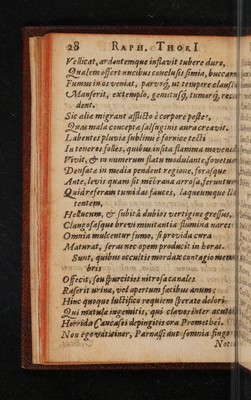 28 RAPH. THORI
Vellicat, ardentemque inflavit tubere duro,
Qualem offert nucibus conclusis simia, buccam
Fumus in os veniat, parvoq́, ut tempore claus
Manserit, extemplo, gemitusq́, tumorq́, rece
dent.
Sic alie migrant afflicto è corpore pestes.
Quas mala concepta salsuginis aura creavit.
Labentes pluvia sublimi è fornice tecti
In teneros folles, quibus insita flamma moven
Vivit, & in numerum flatu modulante, fovetur
Densata in media pendent regione, forasque
Ante, levis quam sit membrana arrosa, feruntur
Quid referam tumidas fauces, laqueumque
tentem,
Helluum, & subitâ dubios vertigine gressus,
Clangosasque brevi minitantia flumina nares
Omnia mulcentur fumo, si provida cura
Maturat, seras nec opem producit in horas.
Sunt, quibus occultis mordax contagio mem
bris
Offecit, seu spurcities nitrosa canales
Raserit urinæ, vel apertum facibus anum:
Hinc quoque luctifico requiem sperate dolori
Qui matula ingemitis, qui clavos inter acutos
Horrida Caucasei depingitis ora Promethei.
Non ego vatinor, Parnassi aut somnia fingo